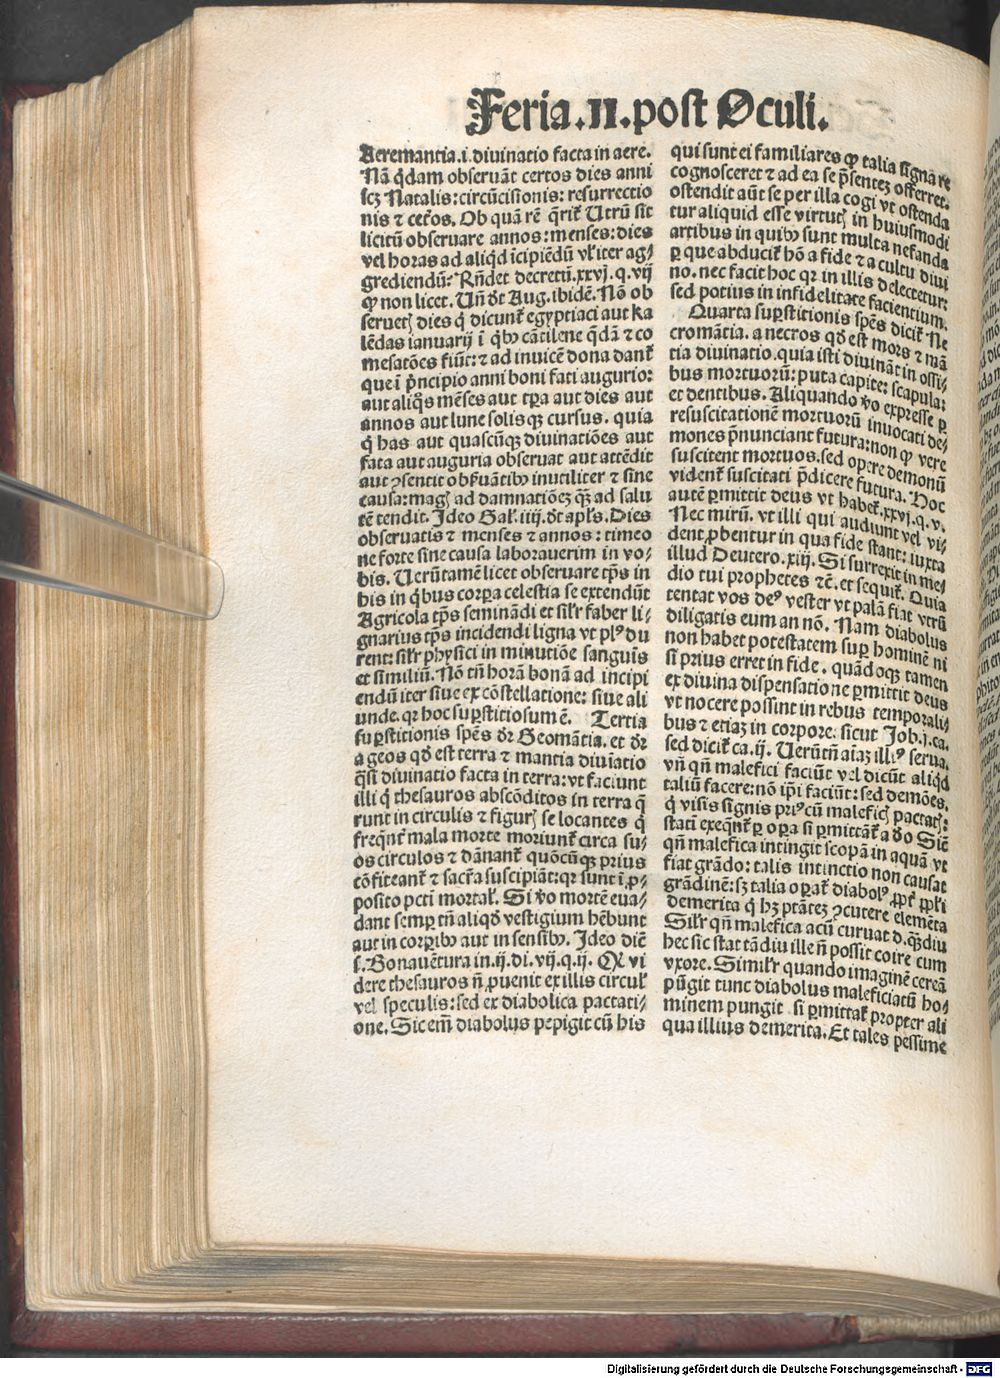 Feria.II.post Oculi.
Aeremantia.i.diuinatio facta in aere.
Nā q̄dam obseruāt certos dies anni
scꝫ Natalis:circūcisionis:resurrectio
nis ⁊ cet̃os. Ob quā rē q̄rit̃ Utrū sit
licitū obseruare annos:menses:dies
vel horas ad aliq̄d īcipiēdū vl̃ iter ag⸗
grediendū: Rñdet decretū.xxvj.q.vij
ꝙ non licet. Uñ dt̄ Aug.ibidē. Nō ob
seruetꝭ dies q̄ dicunt̃ egyptiaci aut ka
lēdas ianuarij ī q̄bꝰ cātilene q̄dā ⁊ co
mesatōes fiūt:⁊ ad inuicē dona dant̃
que ī p̄ncipio anni boni fati augurio:
aut aliq̄s mēses aut tꝑa aut dies aut
annos aut lune solisqꝫ cursus. quia
q̄ has aut quascūqꝫ diuinatiōes aut
fata aut auguria obseruat aut attēdit
aut ꝯsentit obẜuātibꝰ inutiliter ⁊ sine
causa:magꝭ ad damnatiōeꝫ q̄ꝫ ad salu
tē tendit. Ideo Gal̃.iiij.dt̄ apl̃s. Dies
obseruatis ⁊ menses ⁊ annos: timeo
ne forte sine causa laborauerim in vo⸗
bis. Uerūtamē licet obseruare tp̄s in
his in q̄bus corꝑa celestia se extendūt
Agricola tp̄s seminādi et sil̃r faber li⸗
gnarius tp̄s incidendi ligna vt plꝰ du
rent: sil̃r physici in minutiōe sanguīs
et similiū. Nō tñ horā bonā ad incipi
endū iter siue ex cōstellatione: siue ali
unde.qꝛ hoc suꝑstitiosum ē. Tertia
suꝑstitionis spēs dr̄ Geomātia. et dr̄
a geos qd̄ est terra ⁊ mantia diuinatio
q̄si diuinatio facta in terra:vt faciunt
illi q̄ thesauros abscōditos in terra q̄
runt in circulis ⁊ figurꝭ se locantes q̄
freq̄nt̃ mala morte moriunt̃ circa su⸗
os circulos ⁊ dānant̃ quōcūqꝫ prius
cōfiteant̃ ⁊ sacr̃a suscipiāt:qꝛ sunt ī ꝓ⸗
posito pctī mortal̃. Si v̄o mortē eua⸗
dant semꝑ tñ aliqd̄ vestigium hēbunt
aut in corꝑibꝰ aut in sensibꝰ. Ideo diē
s.Bonauētura in.ij.di.vij.q.ij. Qꝙ vi
dere thesauros ñ ꝓuenit ex illis circul̃
vel speculis:sed ex diabolica pactati⸗
one. Sic em̄ diabolus pepigit cū his
qui sunt ei familiares ꝙ talia signa re
cognosceret ⁊ ad ea se p̄senteꝫ offerret.
ostendit aūt se per illa cogi vt ostenda
tur aliquid esse virtutꝭ in huiusmodi
artibus in quibꝰ sunt multa nefanda
ꝑ que abducit̃ hō a fide ⁊ a cultu diui
no. nec facit hoc qꝛ in illis delectetur:
sed potius in infidelitate facientium.
Quarta suꝑstitionis spēs dicit̃ Ne
cromātia. a necros qd̄ est mors ⁊ mā
tia diuinatio.quia isti diuināt in ossi⸗
bus mortuorū: puta capite: scapula:
et dentibus. Aliquando v̄o expresse ꝑ
resuscitationē mortuorū inuocati de⸗
mones p̄nunciant futura:non ꝙ vere
suscitent mortuos.sed opere demonū
vident̃ suscitati p̄dicere futura. Hoc
autē ꝑmittit deus vt habet̃.xxvj.q.v.
Nec mirū. vt illi qui audiunt vel vi⸗
dent ꝓbentur in qua fide stant: iuxta
illud Deutero.xiij. Si surrexit in me⸗
dio tui prophetes ⁊c̄. et sequit̃. Quia
tentat vos deꝰ vester vt palā fiat vtrū
diligatis eum an nō. Nam diabolus
non habet potestatem suꝑ hominē ni
si prius erret in fide. quādoqꝫ tamen
ex diuina dispensatione ꝑmittit deus
vt nocere possint in rebus temporali⸗
bus ⁊ etiaꝫ in corpore. sicut Job.j.ca.
sed dicit̃ ca.ij. Uerūtñ aīaꝫ illiꝰ serua.
vñ qñ malefici faciūt vel dicūt aliqd̄
taliū facere:nō ip̄i faciūt: sed demōes,
q̄ visis signis priꝰ cū maleficꝭ pactatꝭ:
statī exeq̄nt̃ ꝑ oꝑa si ꝑmittāt̃ a deo Sic̄
qñ malefica intingit scopā in aquā vt
fiat grādo: talis intinctio non causat
grādinē:sꝫ talia oꝑat̃ diabolꝰ ꝓpt̃ ppl̃i
demerita q̄ hꝫ ptāteꝫ ꝯcutere elemēta
Sil̃r qñ malefica acū curuat d.q̄ꝫdiu
hec sic stat tādiu ille ñ possit coire cum
vxore. Simil̃r quando imaginē cereā
pūgit tunc diabolus maleficiatū ho⸗
minem pungit si ꝑmittat̃ propter ali
qua illius demerita. Et tales pessime
Digitalisierung gefördert durch die Deutsche Forschungsgemeinschaft - DFG